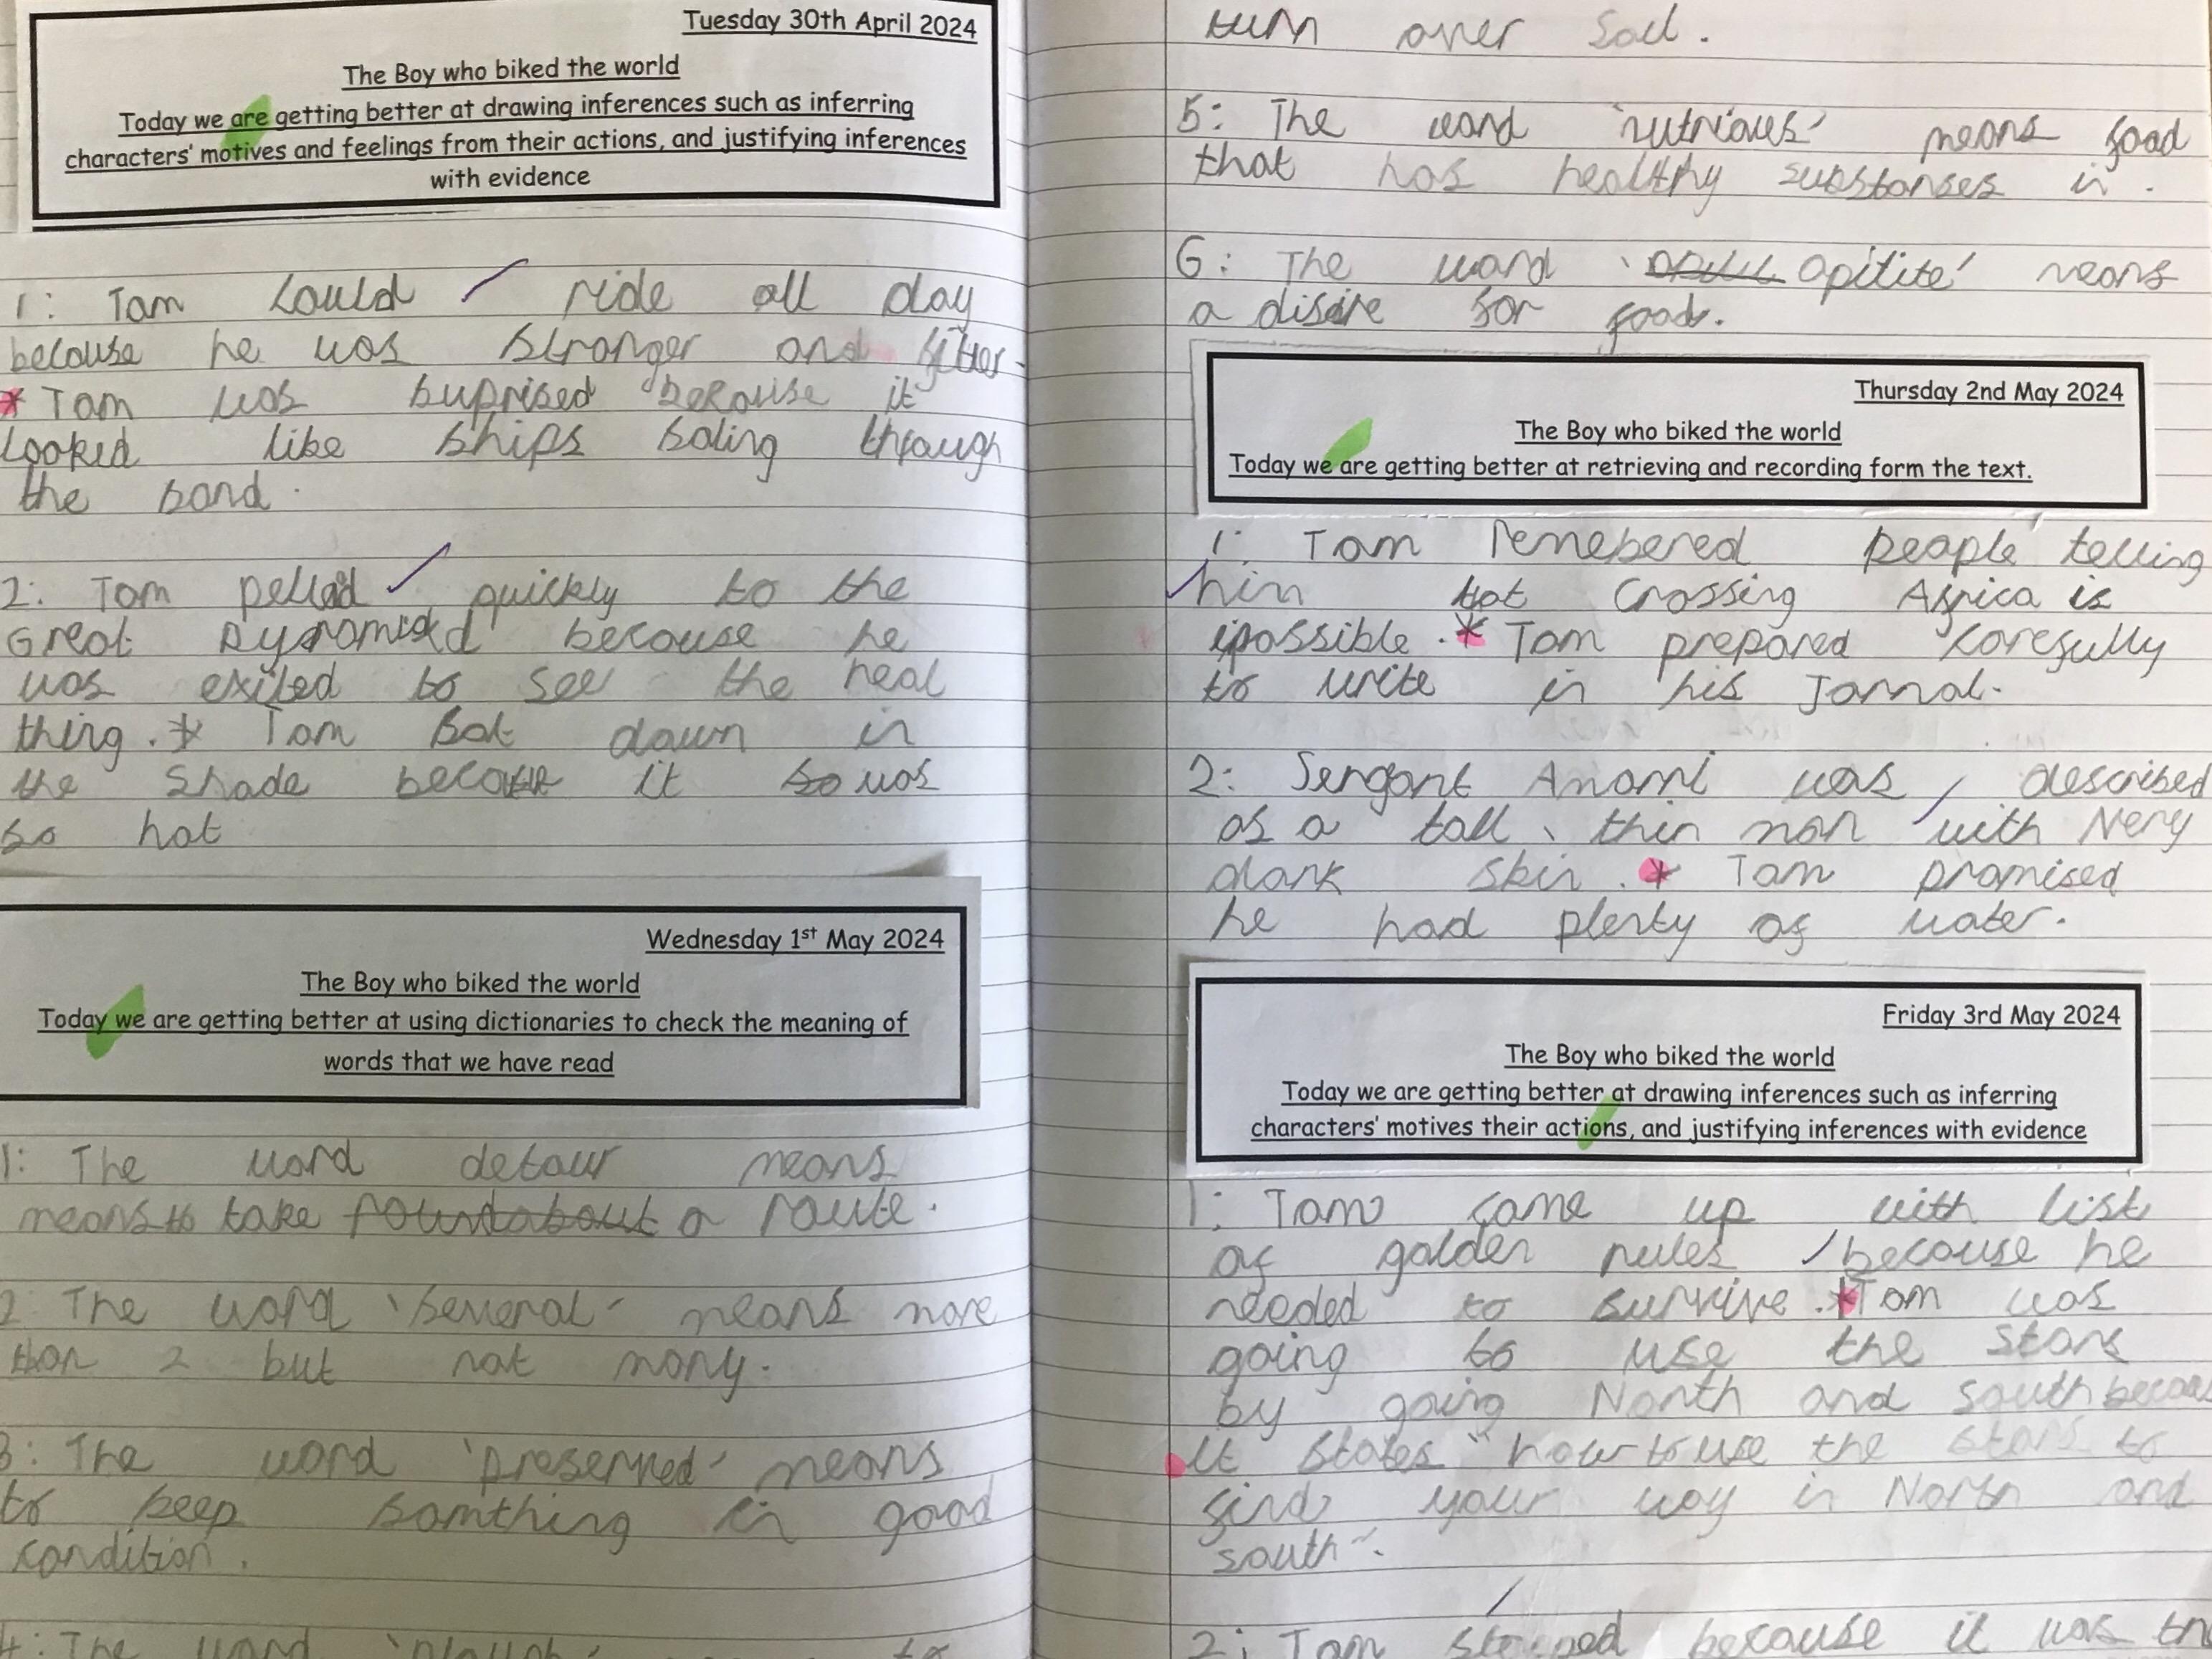 Tuesday 30th April 2024
The Boy who biked the world
Today we are getting better at drawing inferences such as inferring
characters' motives and feelings from their actions, and justifying inferences
with evidence
1: Tom could ride all day
because he was stronger and fitter.
* Tom was suprised because it
looked like ships saling through
the sand.
2: Tom quickly to the
Great because he
was exited to see the real
thing. * Tom sat down in
the shade because it so was
so hot
Wednesday 1st May 2024
The Boy who biked the world
Today we are getting better at using dictionaries to check the meaning of
words that we have read
1: The word detour means
means to take roundabout a route.
2: The word 'several' means more
than 2 but not many.
3: The word 'preserved' means
to keep somthing in good
condition.
4: The word 'plough' to
turn over soil.
5: The word 'nutrious' means food
that has healthy substanses in.
6: The word 'apitite' means
a disire for food.
Thursday 2nd May 2024
The Boy who biked the world
Today we are getting better at retrieving and recording form the text.
1: Tom remebered people telling
him tat crossing Africa is
ipossible. * Tom prepared carefully
to write in his Jornal.
2: Sergant Amami was described
as a tall, thin man with very
dark skin. * Tom promised
he had plenty of water.
Friday 3rd May 2024
The Boy who biked the world
Today we are getting better at drawing inferences such as inferring
characters' motives their actions, and justifying inferences with evidence
1: Tom came up with list
of golden rules because he
needed to survive. * Tom was
going to use the stars
by going North and South
it states "how to use the stars to
find your way in North and
south".
2: Tom because it was